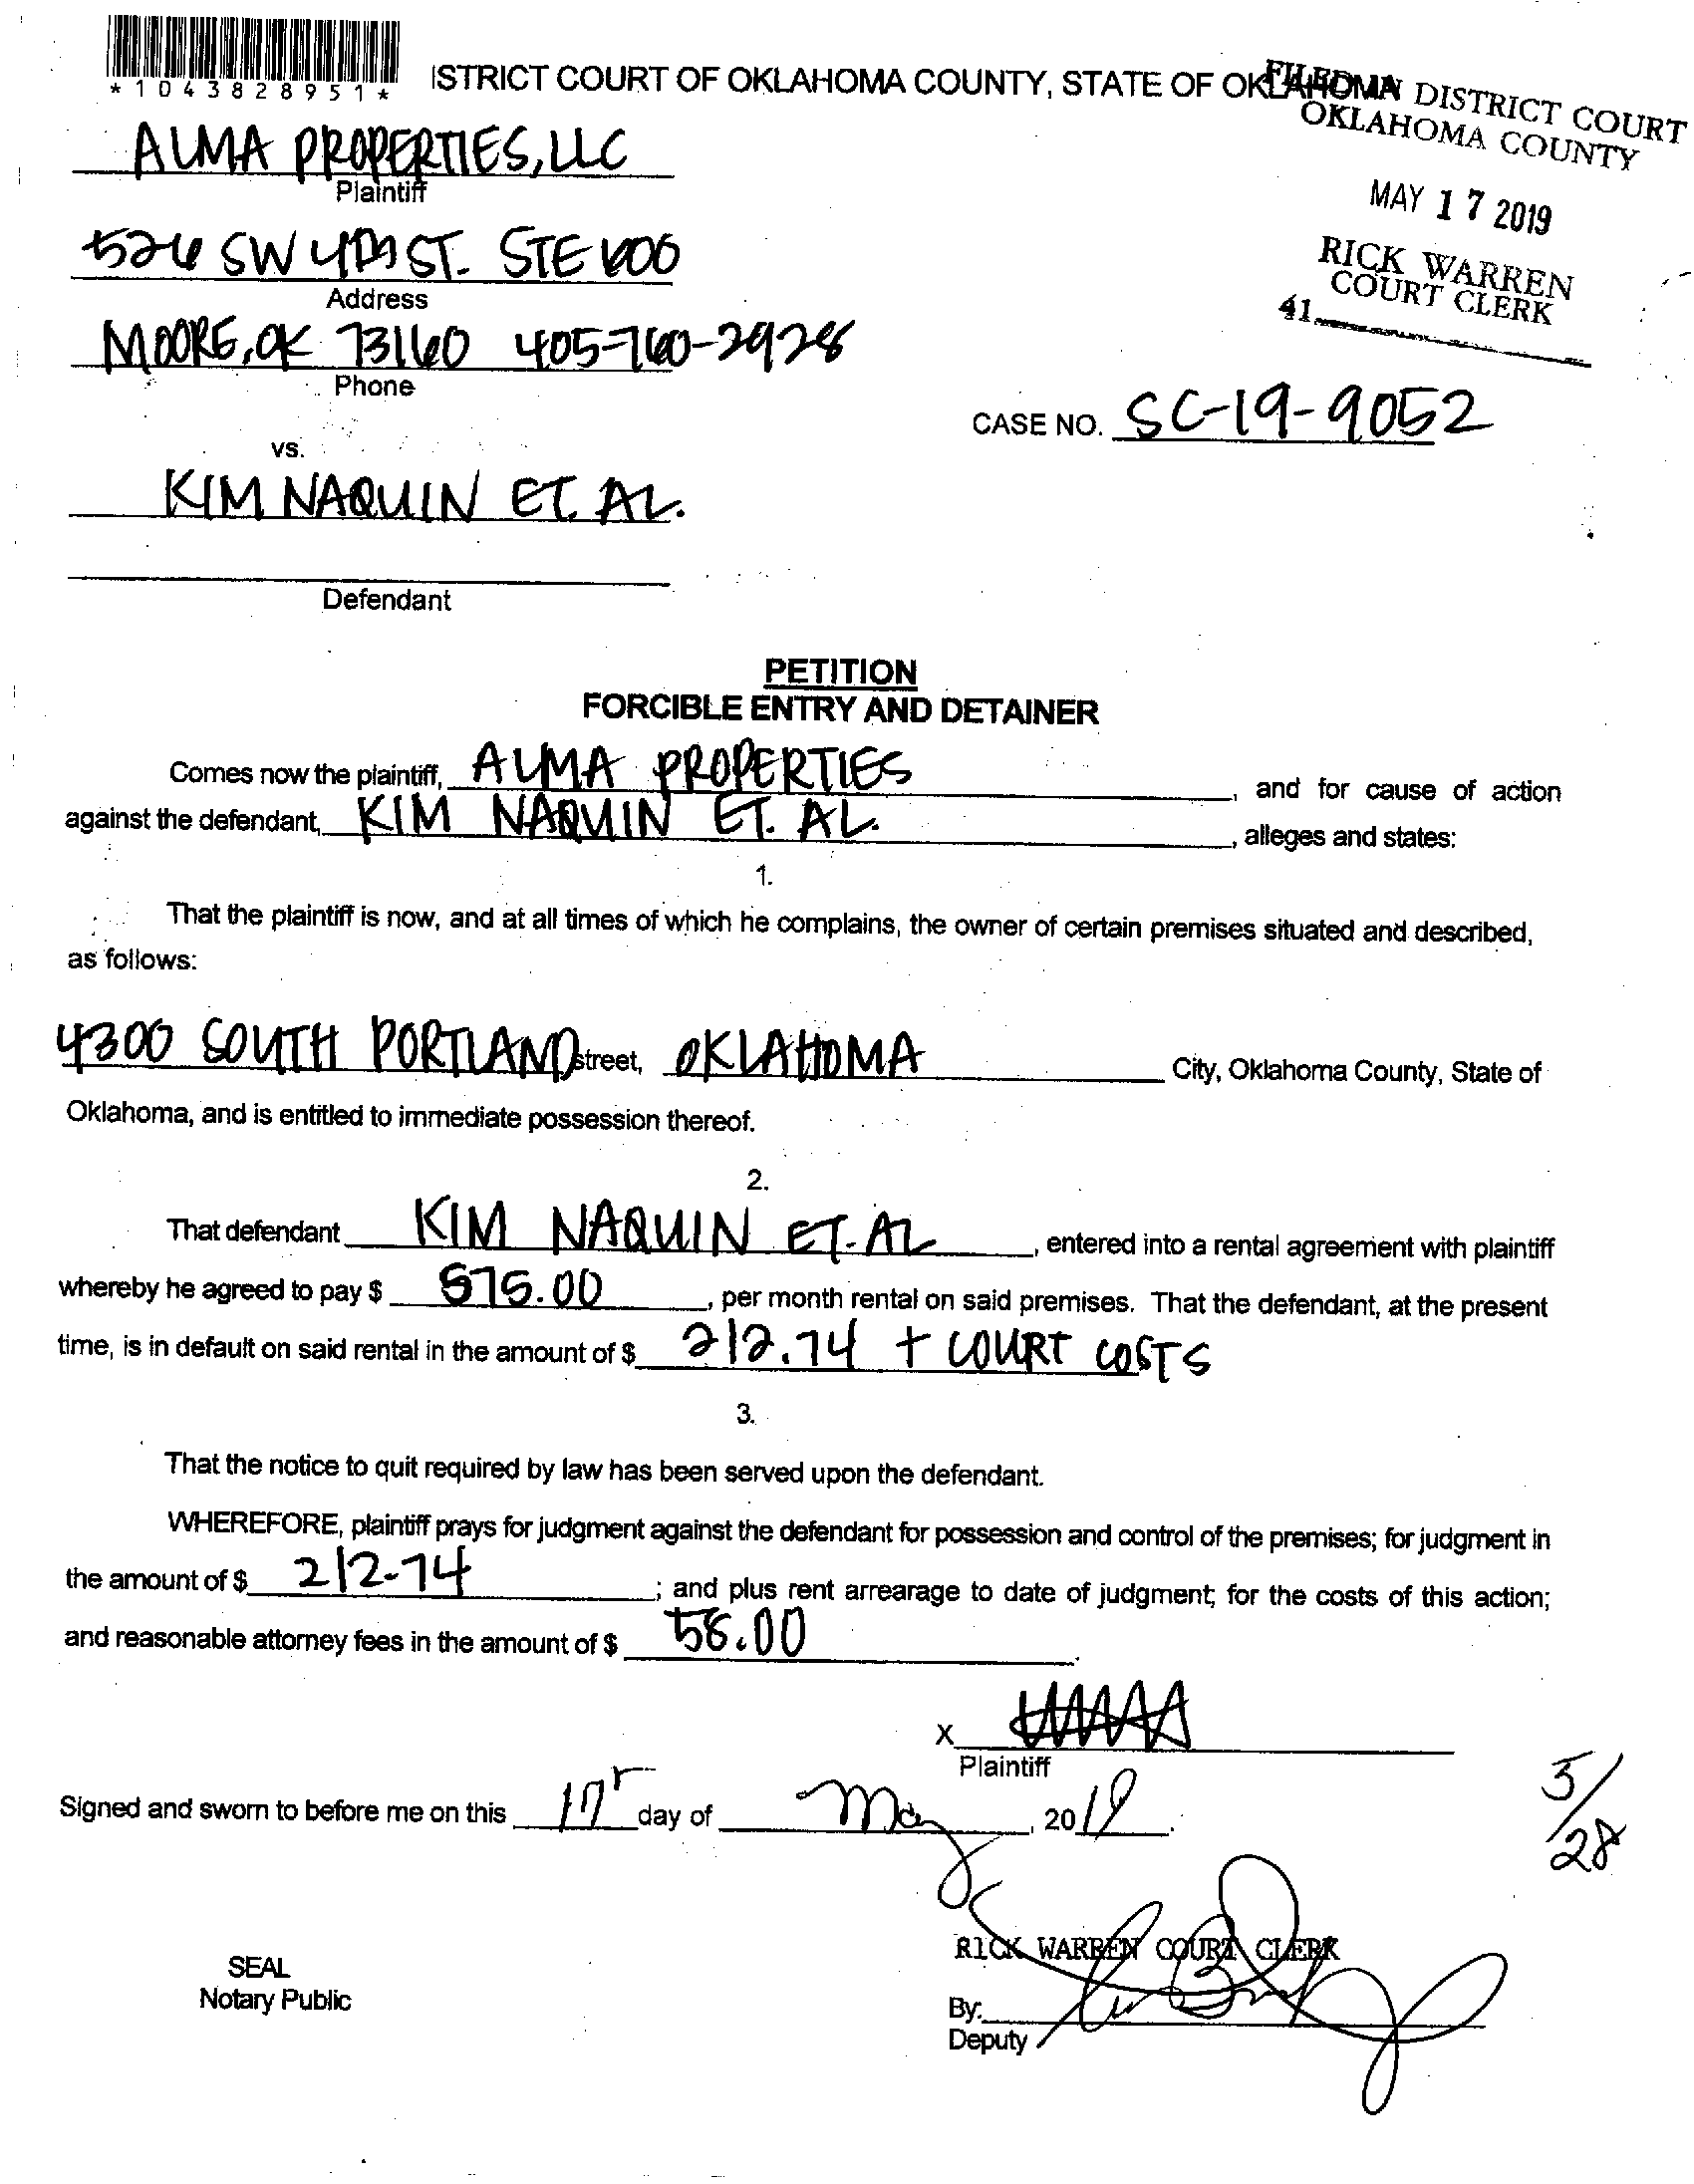 *1043828951*
ISTRICT COURT OF OKLAHOMA COUNTY, STATE OF OKLAHOMA
FILED IN DISTRICT COURT
OKLAHOMA COUNTY
MAY 17 2019
RICK WARREN
COURT CLERK
41
ALMA PROPERTIES, LLC
Plaintiff
526 SW 4TH ST. STE 600
Address
MOORE, OK 73160 405-760-2928
Phone
CASE NO. SC-19-9052
vs.
KIM NAQUIN ET. AL.
Defendant
PETITION
FORCIBLE ENTRY AND DETAINER
Comes now the plaintiff, ALMA PROPERTIES, and for cause of action
against the defendant, KIM NAQUIN ET. AL., alleges and states:
1.
That the plaintiff is now, and at all times of which he complains, the owner of certain premises situated and described,
as follows:
4300 SOUTH PORTLAND street, OKLAHOMA City, Oklahoma County, State of
Oklahoma, and is entitled to immediate possession thereof.
2.
That defendant KIM NAQUIN ET. AL, entered into a rental agreement with plaintiff
whereby he agreed to pay $ 575.00, per month rental on said premises. That the defendant, at the present
time, is in default on said rental in the amount of $ 212.74 + COURT COSTS
3.
That the notice to quit required by law has been served upon the defendant.
WHEREFORE, plaintiff prays for judgment against the defendant for possession and control of the premises; for judgment in
the amount of $ 212-74; and plus rent arrearage to date of judgment; for the costs of this action;
and reasonable attorney fees in the amount of $ 58.00.
X
Plaintiff
Signed and sworn to before me on this 17 day of May, 2019.
5/28
RICK WARREN COURT CLERK
SEAL
Notary Public
By:
Deputy